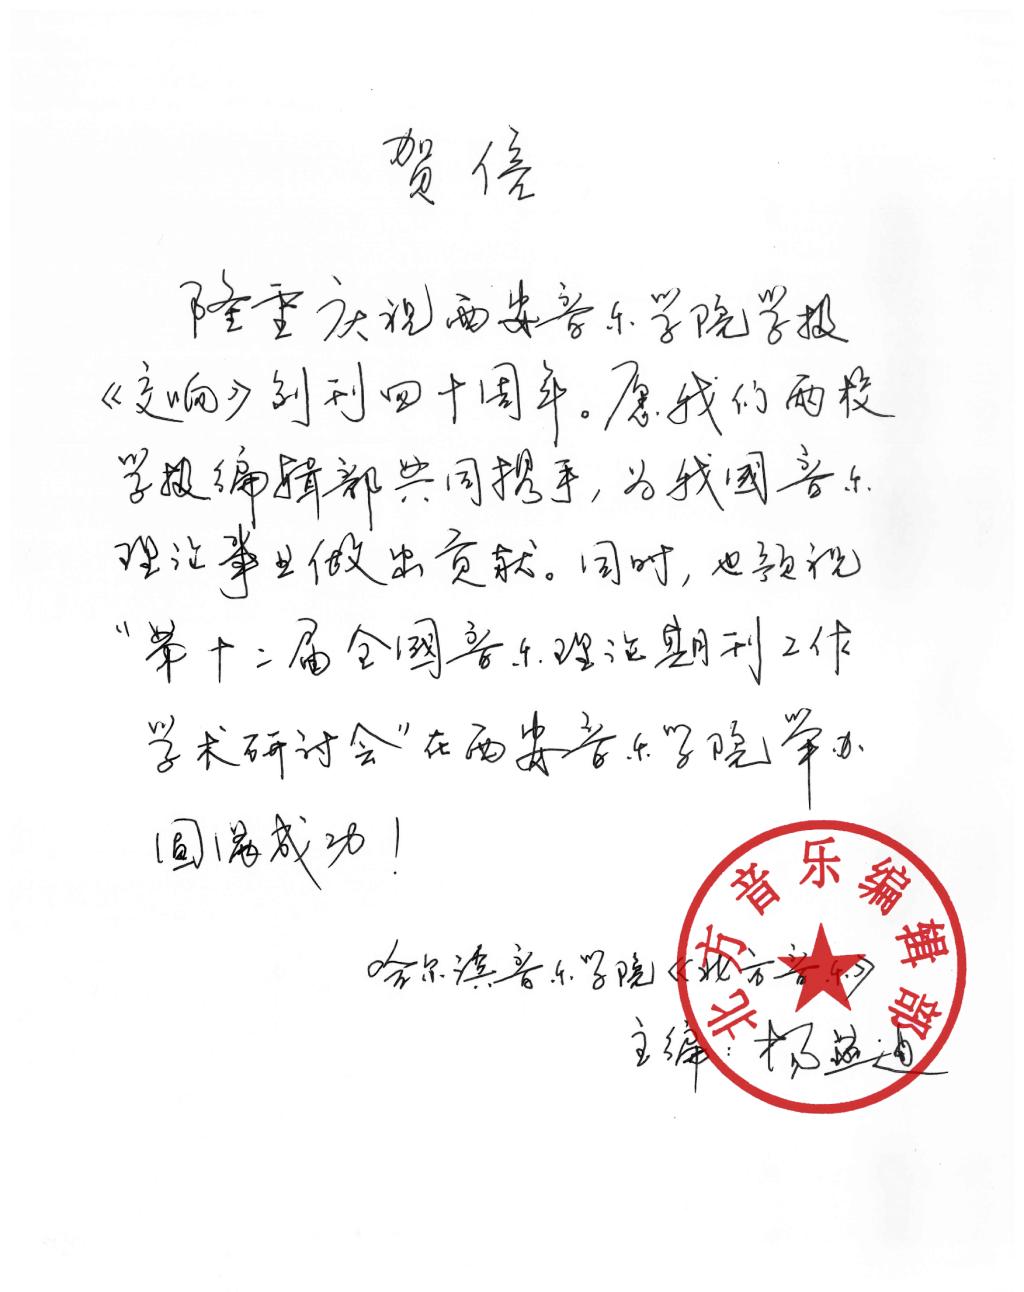 贺信
隆重庆祝西安音乐学院学报
《交响》创刊四十周年。愿我们两校
学报编辑部共同携手,为我國音乐
理论事业做出贡献。同时,也预祝
“第十二届全國音乐理论期刊工作
学术研讨会”在西安音乐学院举办
圆满成功!
哈尔滨音乐学院《北方音乐》
主编:杨燕迪
北方音乐编辑部